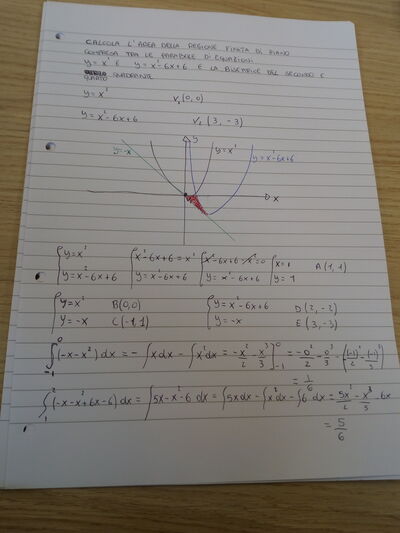 CALCOLA L'AREA DELLA REGIONE FINITA DI PIANO
COMPRESA TRA LE PARABOLE D'EQUAZIONI
y = x² E y = x²-6x+6 E LA BISETTRICE DEL SECONDO E
QUARTO QUADRANTE
y = x² V₁(0,0)
y = x²-6x+6 V₂ (3,-3)
y y=x² y=x²-6x+6
y=-x
x
{y=x² {x²-6x+6=x² {x²-6x+6-x²=0 {x=1 A(1,1)
{y=x²-6x+6 {y=x²-6x+6 {y=x²-6x+6 {y=1
{y=x² B(0,0) {y=x²-6x+6 D(2,-2)
{y=-x C(-1,1) {y=-x E(3,-3)
∫₋₁⁰(-x-x²)dx = -∫xdx-∫x²dx = -x²/2-x³/3]₋₁⁰ = -0²/2-0³/3-(-(-1)²/2-(-1)³/3)
= 1/6
∫₁²(-x-x²+6x-6)dx = ∫5x-x²-6 dx = ∫5xdx-∫x²dx-∫6 dx = 5x²/2-x³/3-6x
= 5/6